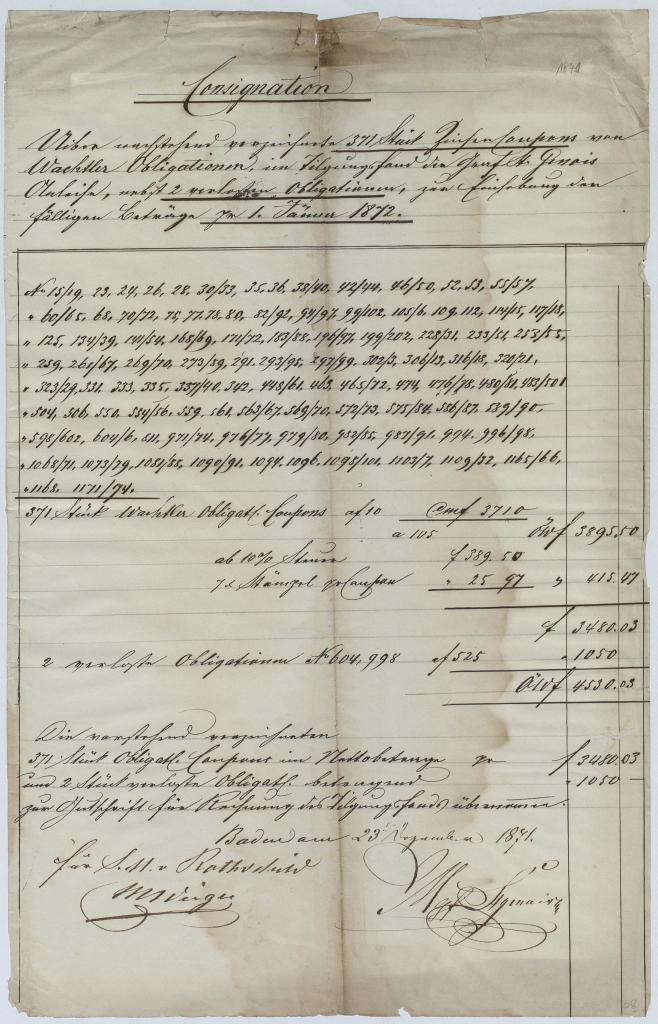 1871
Consignation
Ueber nachstehend verzeichnete 371 Stück Zinsen Coupons von
Wachtler Obligationen, im Tilgungsfond der Graf St. Genois
Anleihe, nebst 2 verlosten Obligationen, zur Einhebung der
fälligen Beträge pr 1. Jänner 1872.
No 15/19, 23, 24, 26, 28, 30/33, 35, 36, 38/40, 42/44, 46/50, 52, 53, 55/57,
" 60/65, 68, 70/72, 75, 77, 78, 80, 82/92, 94/97, 99/102, 105/6, 109, 112, 114/15, 117/18,
" 125, 134/39, 141/54, 168/69, 171/72, 183/88, 196/97, 199/202, 228/31, 233/51, 253/55,
" 259, 261/67, 269/70, 273/89, 291, 293/95, 297/99, 302/3, 306/13, 316/18, 320/21,
" 323/29, 331, 333, 335, 337/40, 342, 448/61, 463, 465/72, 474, 476/78, 480/81, 483/501
" 504, 506, 550, 554/56, 559, 561, 563/67, 569/70, 572/73, 575/84, 586/87, 589/90,
" 598/602, 604/6, 611, 971/74, 976/77, 979/80, 982/85, 987/91, 994, 996/98,
" 1068/71, 1073/79, 1081/88, 1090/91, 1094, 1096, 1098/101, 1103/7, 1109/32, 1165/66,
" 1168, 1171/74.
371 Stück Wachtler Obligatt. Coupons af 10 Cmf 3710
a 105 ÖWf 3895.50
ab 10% Steuer f 389.50
7 x Stämpel pr Coupon " 25 97 " 415.47
f 3480.03
2 verloste Obligationen No 604, 998 af 525 " 1050
ÖWf 4530.03
Die vorstehend verzeichneten
371 Stück Obligatt. Coupons im Nettobetrage pr f 3480.03
und 2 Stück verloste Obligatt. betragend " 1050 —
zur Gutschrift für Rechnung des Tilgungsfonds übernommen.
Baden am 23 Dezember 1871.
für S. M. v Rothschild